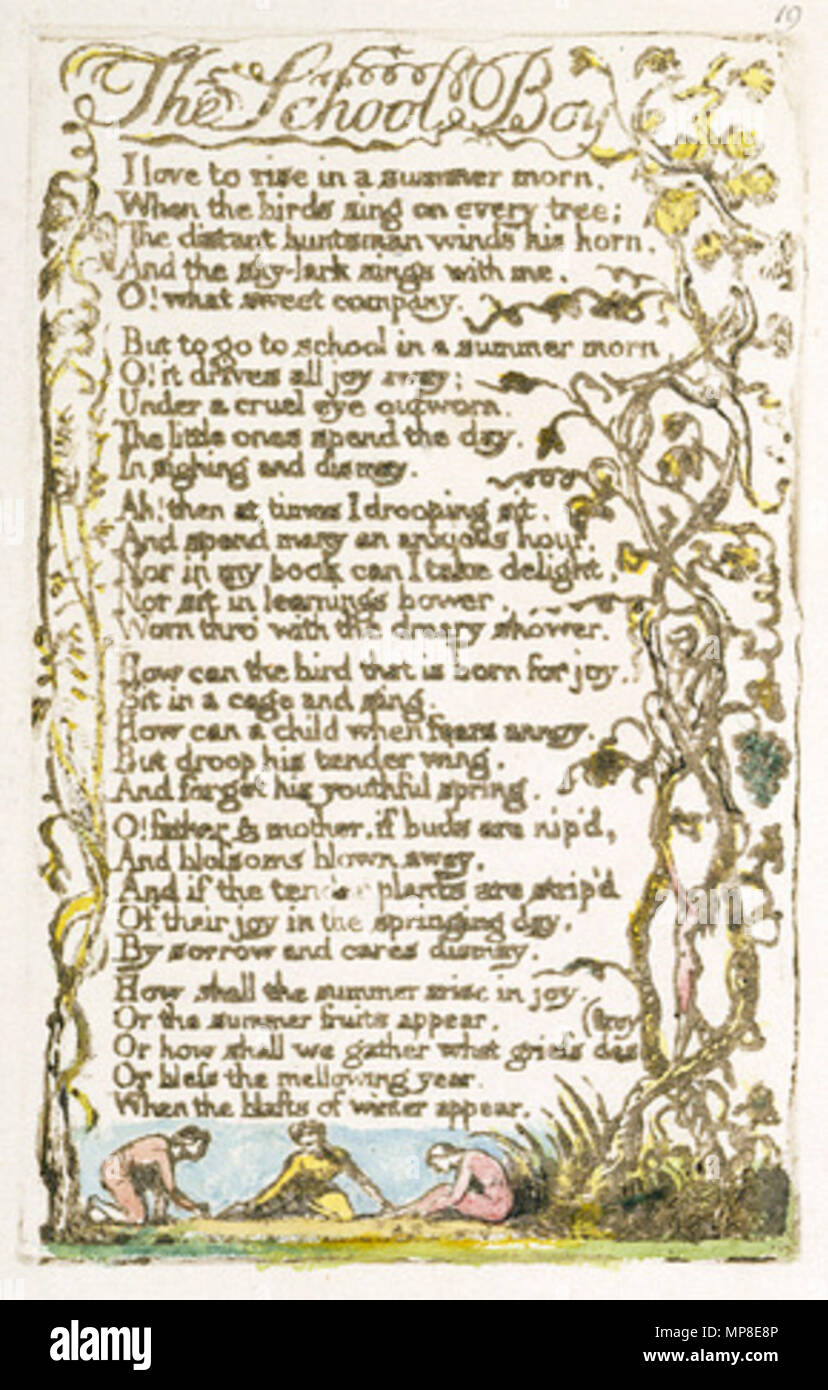 19
The School Boy
I love to rise in a summer morn,
When the birds sing on every tree;
The distant huntsman winds his horn,
And the sky-lark sings with me.
O! what sweet company.
But to go to school in a summer morn
O! it drives all joy away;
Under a cruel eye outworn.
The little ones spend the day.
In sighing and dismay.
Ah! then at times I drooping sit.
And spend many an anxious hour.
Nor in my book can I take delight,
Nor sit in learnings bower.
Worn thro' with the dreary shower.
How can the bird that is born for joy.
Sit in a cage and sing.
How can a child when fears annoy.
But droop his tender wing.
And forget his youthful spring.
O! father & mother, if buds are nip'd,
And blossoms blown away,
And if the tender plants are strip'd
Of their joy in the springing day,
By sorrow and cares dismay,
How shall the summer arise in joy.
Or the summer fruits appear. (troy
Or how shall we gather what griefs des
Or bless the mellowing year.
When the blasts of winter appear.
alamy
Image ID: MP8E8P
www.alamy.com